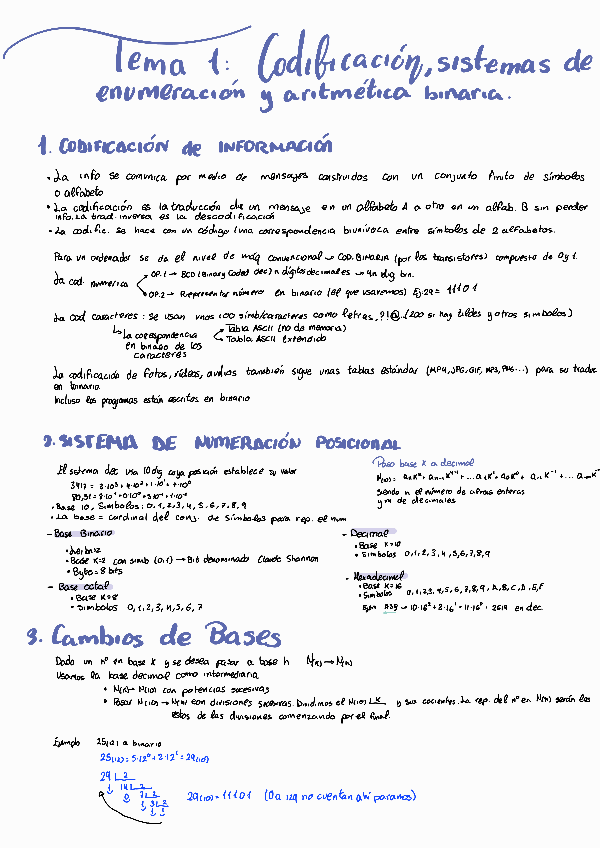 Tema 1: Codificación, sistemas de
enumeración y aritmética binaria.
1. CODIFICACIÓN de INFORMACIÓN
• La info se comunica por medio de mensajes construidos con un conjunto finito de símbolos
o alfabeto
• La codificación es la traducción de un mensaje en un alfabeto A a otro en un alfab. B sin perder
info. La trad. inversa es la descodificación
• La codific. se hace con un código (una correspondencia biunívoca entre símbolos de 2 alfabetos.
Para un ordenador se da el nivel de máq convencional → COD. BINARIA (por los transistores) compuesto de 0 y 1.
La cod. numérica
OP.1 → BCD (Binary Coded dec) n dígitos decimales → 4n díg bin.
OP.2 → Representar número en binario (el que usaremos) Ej: 29 = 11101
La cod caracteres: se usan unos 100 simb/caracteres como letras, ?!@... (200 si hay tildes y otros simbolos)
↳ La correspondencia
en binario de los
caracteres
Tabla ASCII (no de memoria)
Tabla ASCII Extendido
La codificación de fotos, vídeos, audios también sigue unas tablas estándar (MP4, JPG, GIF, MP3, PNG...) para su traduc
en binario
Incluso los programas están escritos en binario
2. SISTEMA DE NUMERACIÓN POSICIONAL
El sistema dec usa 10 dig cuya posición establece su valor
• Base 10, Simbolos: 0, 1, 2, 3, 4, 5, 6, 7, 8, 9
• La base = cardinal del conj. de símbolos para rep. el num
Paso base K a decimal
siendo n el número de cifras enteras
y m de decimales
- Base Binario
• Base K=2 con simb (0,1) → Bit denominado Claude Shannon
• Byte = 8 bits
- Base octal
• Base K=8
• Simbolos 0, 1, 2, 3, 4, 5, 6, 7
- Decimal
• Base K=10
• Simbolos 0, 1, 2, 3, 4, 5, 6, 7, 8, 9
- Hexadecimal
• Base K=16
• Simbolos 0, 1, 2, 3, 4, 5, 6, 7, 8, 9, A, B, C, D, E, F
3. Cambios de Bases
Dado un nº en base K y se desea pasar a base h N(K) → N(h)
Usamos la base decimal como intermediaria
• N(K) → N(10) con potencias sucesivas
• Pasar N(10) → N(h) con divisiones sucesivas. Dividimos el N(10) y sus cocientes. La rep. del nº en N(h) serán los
restos de las divisiones comenzando por el final.
Ejemplo 25(12) a binario
25(12) = 5·12⁰ + 2·12¹ = 29(10)
29 | 2
1 14 | 2
0 7 | 2
1 3 | 2
1 1
29(10) = 11101 (0 a izq no cuentan ahí paramos)